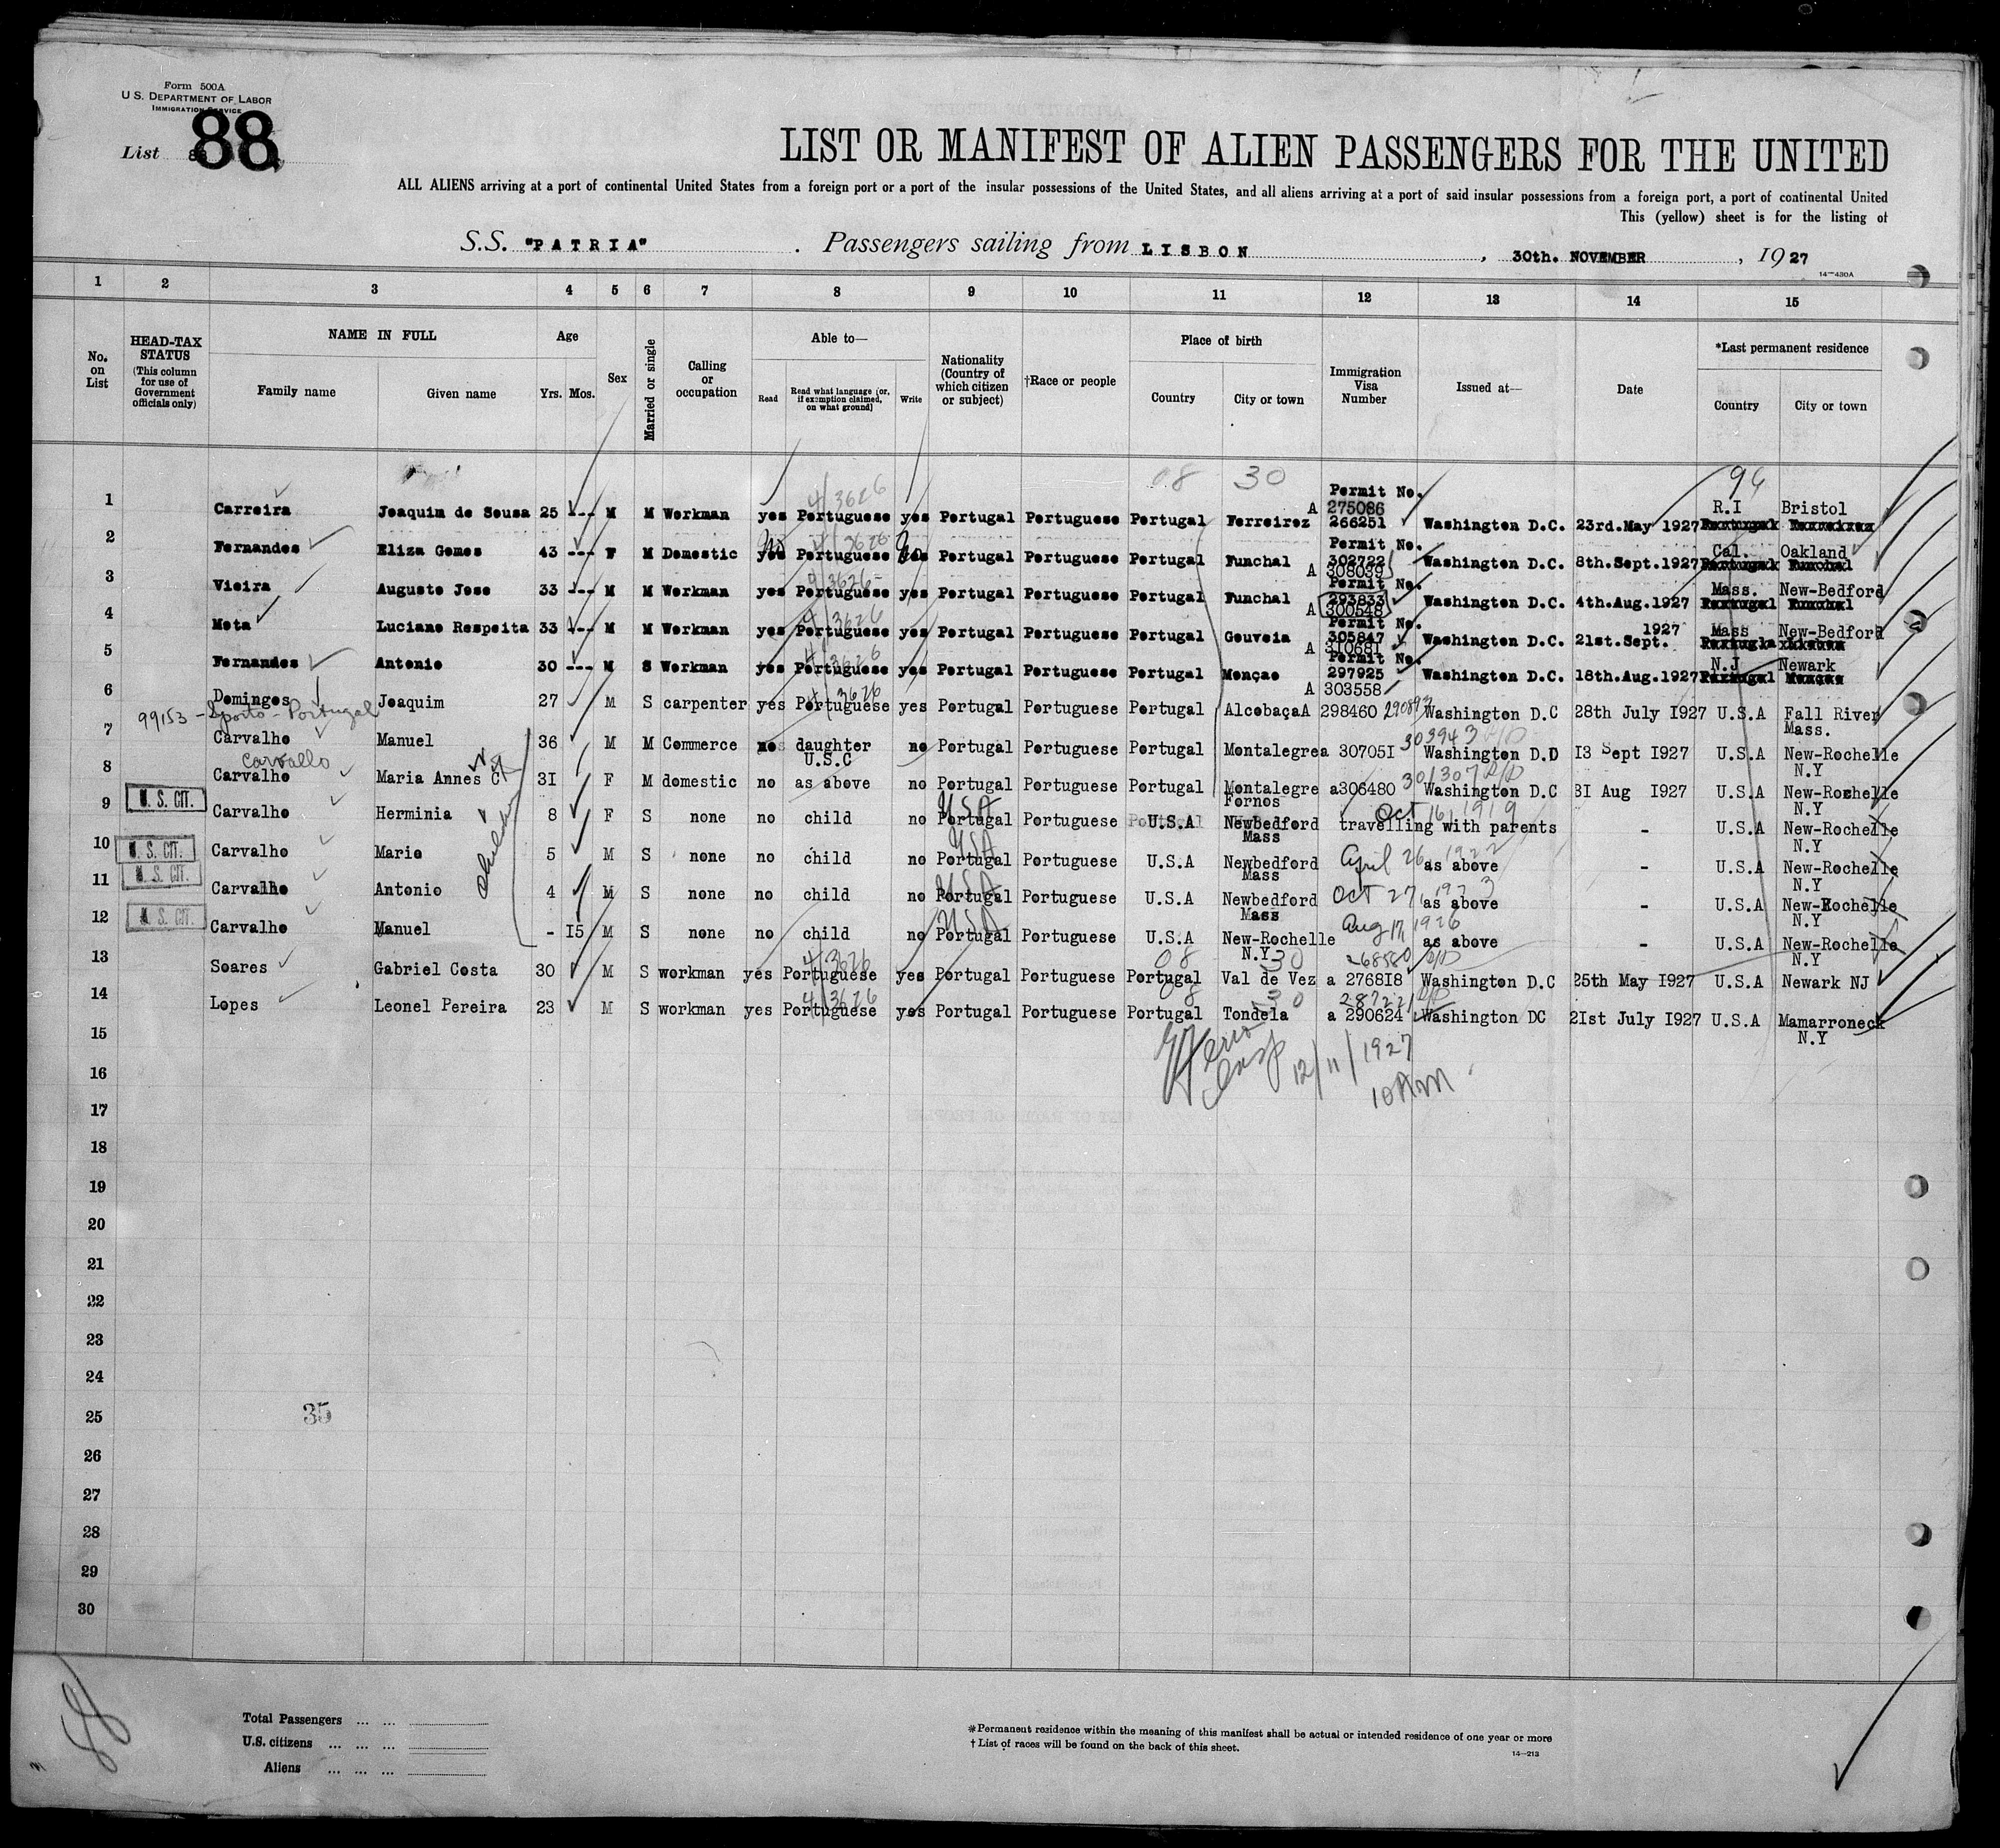 Form 500A
U.S. DEPARTMENT OF LABOR
IMMIGRATION SERVICE
List 88
LIST OR MANIFEST OF ALIEN PASSENGERS FOR THE UNITED
ALL ALIENS arriving at a port of continental United States from a foreign port or a port of the insular possessions of the United States, and all aliens arriving at a port of said insular possessions from a foreign port, a port of continental United
This (yellow) sheet is for the listing of
S.S. "PATRIA" . Passengers sailing from LISBON , 30th. NOVEMBER , 1927
14—430A
1 2 3 4 5 6 7 8 9 10 11 12 13 14 15
No. on List
HEAD-TAX STATUS (This column for use of Government officials only)
NAME IN FULL
Family name Given name
Age
Yrs. Mos.
Sex
Married or single
Calling or occupation
Able to—
Read Read what language (or, if exemption claimed, on what ground) Write
Nationality (Country of which citizen or subject)
†Race or people
Place of birth
Country City or town
Immigration Visa Number
Issued at—
Date
*Last permanent residence
Country City or town
08 30 94
Permit No.
1 Carreira Joaquim de Sousa 25 --- M M Workman yes Portuguese yes Portugal Portuguese Portugal Ferreirez A 275086 266251 Washington D.C. 23rd.May 1927 R.I Bristol
4/3626
Permit No.
2 Fernandes Eliza Gomes 43 --- F M Domestic yes Portuguese yes Portugal Portuguese Portugal Funchal 302722 A 308039 Washington D.C. 8th.Sept.1927 Cal. Oakland
4/3626
Permit No.
3 Vieira Augusto Jose 33 --- M M Workman yes Portuguese yes Portugal Portuguese Portugal Funchal 293833 A 300548 Washington D.C. 4th.Aug.1927 Mass. New-Bedford
4/3626
Permit No.
4 Mota Luciano Respeita 33 --- M M Workman yes Portuguese yes Portugal Portuguese Portugal Gouveia 305847 A 310681 Washington D.C. 21st.Sept. 1927 Mass New-Bedford
4/3626
Permit No.
5 Fernandes Antonio 30 --- M S Workman yes Portuguese yes Portugal Portuguese Portugal Monçao 297925 A 303558 Washington D.C. 18th.Aug.1927 N.J Newark
4/3626
6 Domingos Joaquim 27 M S carpenter yes Portuguese yes Portugal Portuguese Portugal Alcobaça A 298460 Washington D.C 28th July I927 U.S.A Fall River Mass.
4/3626
99153 - Oporto - Portugal
7 Carvalho Manuel 36 M M Commerce no daughter U.S.C no Portugal Portuguese Portugal Montalegre a 30705I Washington D.D I3 Sept I927 U.S.A New-Rochelle N.Y
Carvallo
303943
8 Carvalho Maria Annes C 3I F M domestic no as above no Portugal Portuguese Portugal Montalegre Fornos a306480 Washington D.C 3I Aug I927 U.S.A New-Rochelle N.Y
301307
9 U.S. CIT. Carvalho Herminia 8 F S none no child no Portugal USA Portuguese U.S.A Newbedford Mass travelling with parents - U.S.A New-Rochelle N.Y
Oct 16, 1919
10 U.S. CIT. Carvalho Mario 5 M S none no child no Portugal USA Portuguese U.S.A Newbedford Mass as above - U.S.A New-Rochelle N.Y
April 26, 1922
11 U.S. CIT. Carvalho Antonio 4 M S none no child no Portugal USA Portuguese U.S.A Newbedford Mass as above - U.S.A New-Rochelle N.Y
Oct 27, 1923
12 U.S. CIT. Carvalho Manuel - I5 M S none no child no Portugal USA Portuguese U.S.A New-Rochelle N.Y as above - U.S.A New-Rochelle N.Y
Aug 17, 1926
13 Soares Gabriel Costa 30 M S workman yes Portuguese yes Portugal Portuguese Portugal Val de Vez a 2768I8 Washington D.C 25th May I927 U.S.A Newark NJ
4/3626 08 30
14 Lopes Leonel Pereira 23 M S workman yes Portuguese yes Portugal Portuguese Portugal Tondela a 290624 Washington DC 2Ist July I927 U.S.A Mamarroneck N.Y
4/3626 08 30
15
Insp 12/11/1927
10 AM
16
17
18
19
20
21
22
23
24
25
35
26
27
28
29
30
88
Total Passengers ... ...
U.S. citizens ... ... ...
Aliens ... ... ...
*Permanent residence within the meaning of this manifest shall be actual or intended residence of one year or more
† List of races will be found on the back of this sheet.
14—213